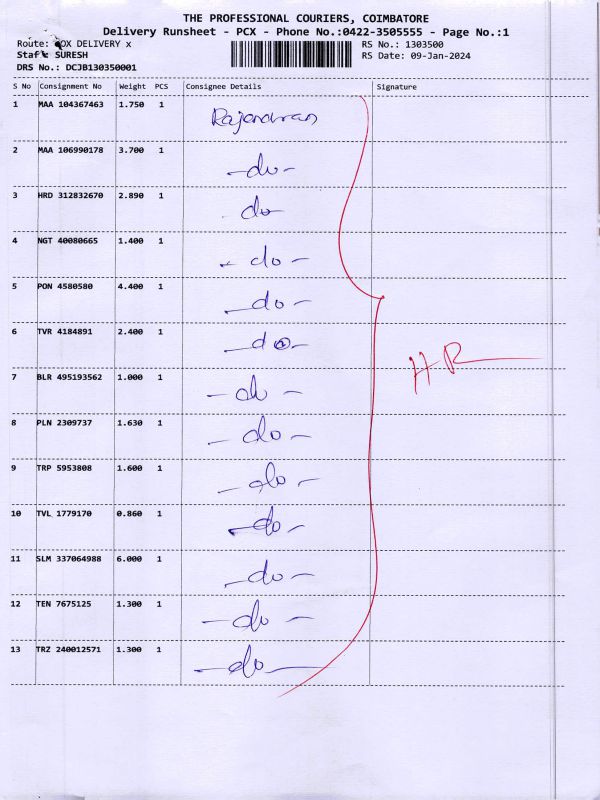 THE PROFESSIONAL COURIERS, COIMBATORE
Delivery Runsheet - PCX - Phone No.:0422-3505555 - Page No.:1
Route: BOX DELIVERY x
RS No.: 1303500
Staff: SURESH
RS Date: 09-Jan-2024
DRS No.: DCJB130350001
S No Consignment No Weight PCS Consignee Details Signature
1 MAA 104367463 1.750 1 Rajendran
2 MAA 106990178 3.700 1 -do-
3 HRD 312832670 2.890 1 do-
4 NGT 40080665 1.400 1 - do -
5 PON 4580580 4.400 1 -do -
6 TVR 4184891 2.400 1 -do-
7 BLR 495193562 1.000 1 - do -
8 PLN 2309737 1.630 1 - do -
9 TRP 5953808 1.600 1 - do -
10 TVL 1779170 0.860 1 -do -
11 SLM 337064988 6.000 1 -do -
12 TEN 7675125 1.300 1 - do -
13 TRZ 240012571 1.300 1 -do-
HR